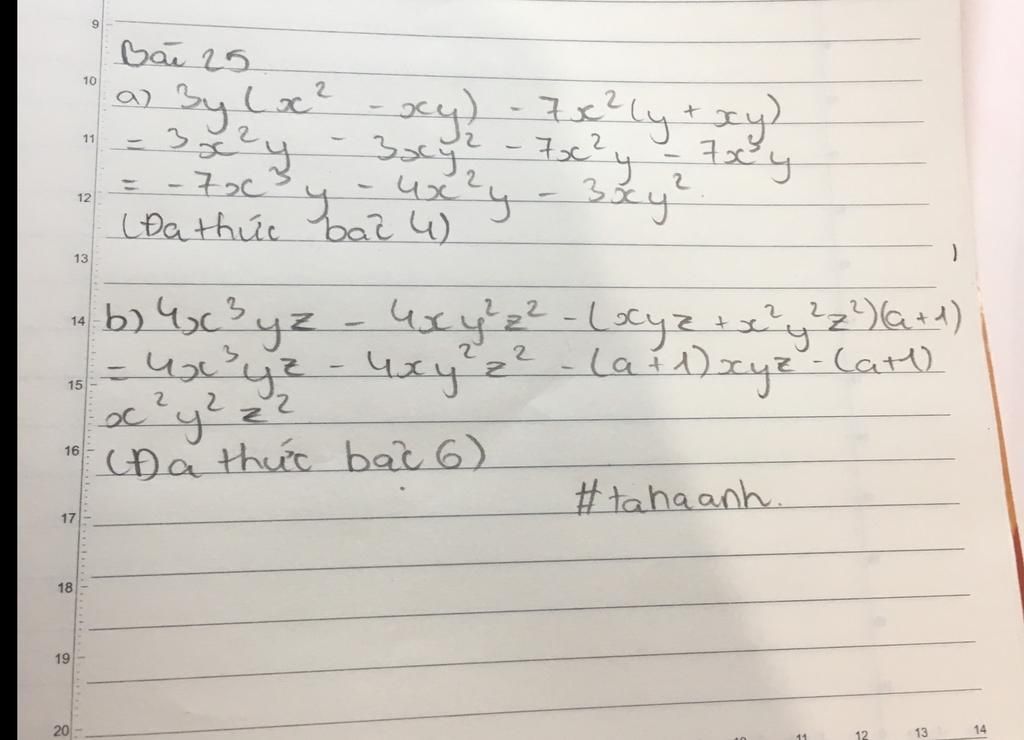 9
Bài 25
10
a) 3y(x² - xy) - 7x²(y + xy)
11
= 3x²y - 3xy² - 7x²y - 7x³y
= -7x³y - 4x²y - 3xy².
12
(Đa thức bậc 4)
13
14
b) 4x³yz - 4xy²z² - (xyz + x²y²z²)(a+1)
= 4x³yz - 4xy²z² - (a+1)xyz - (a+1)
15
x²y²z²
16
(Đa thức bậc 6)
#tahaanh.
17
18
19
20
11 12 13 14